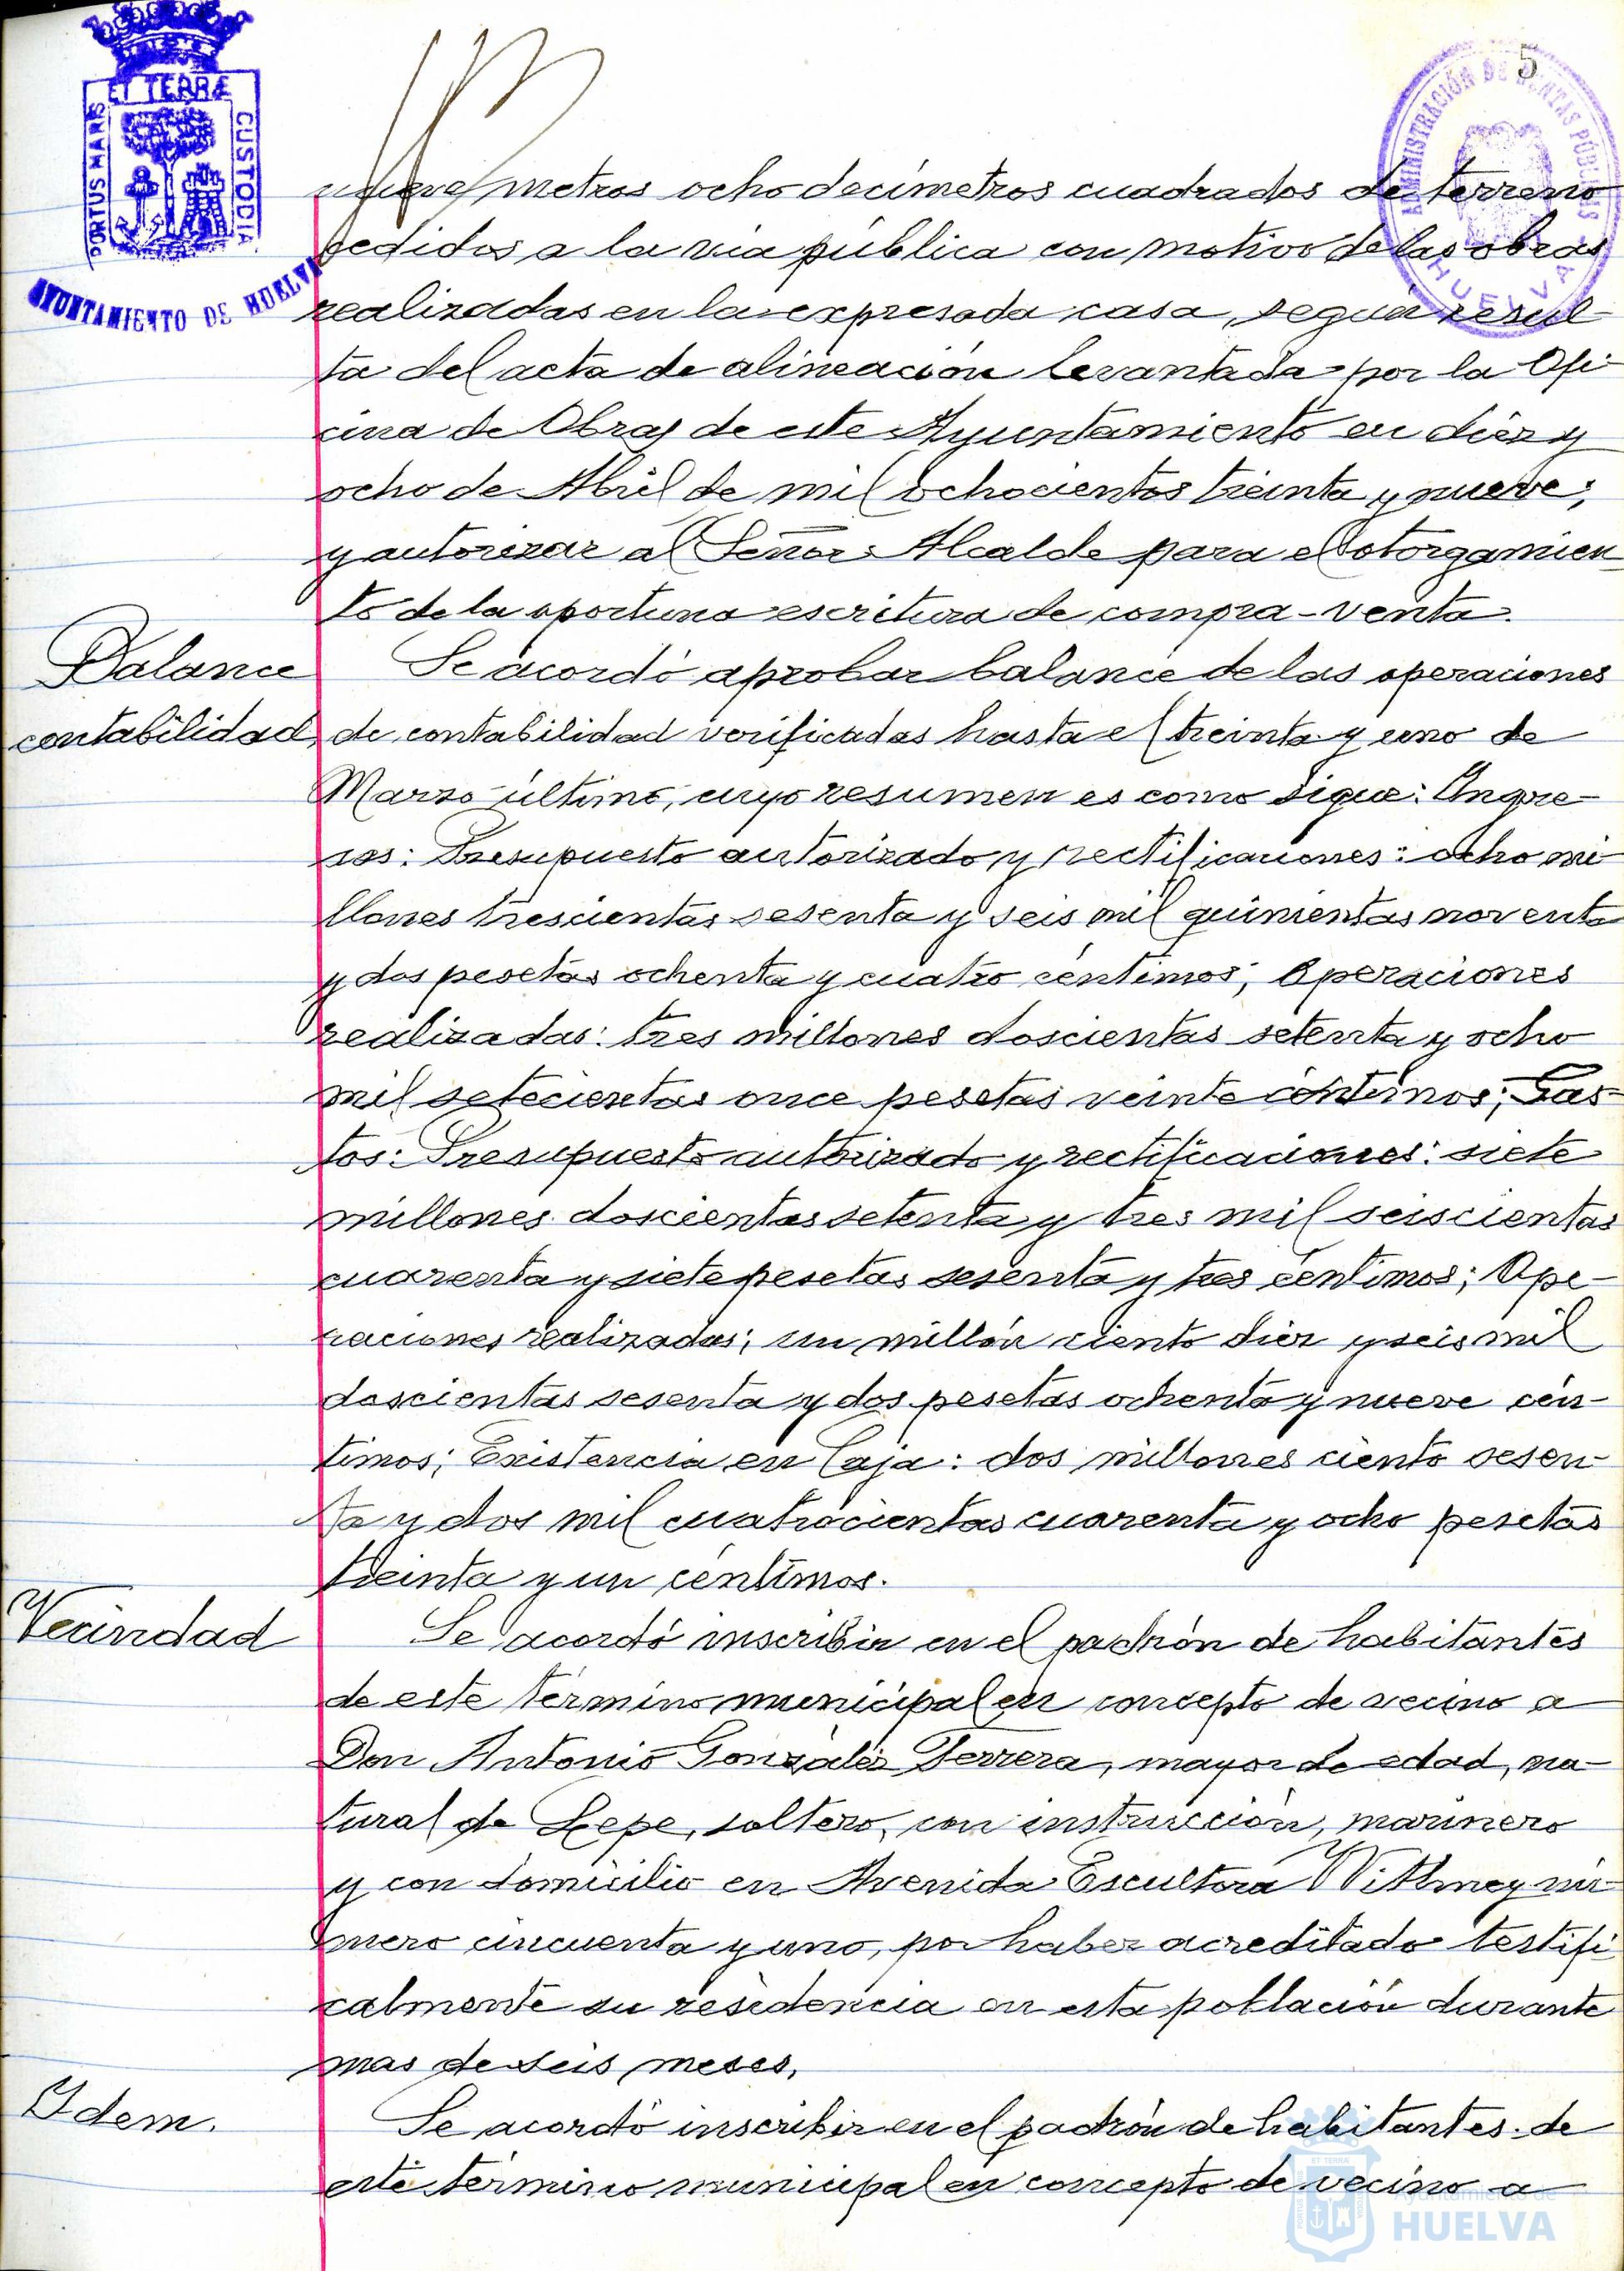 5
ET TERRÆ
PORTUS MARIS
CUSTODIA
AYUNTAMIENTO DE HUELVA
ADMINISTRACIÓN DE RENTAS PÚBLICAS
HUELVA
nueve metros ocho decímetros cuadrados de terreno
cedidos a la via pública con motivo de las obras
realizadas en la expresada casa, según resul-
ta del acta de alineación levantada por la Ofi-
cina de Obras de este Ayuntamiento en diez y
ocho de Abril de mil ochocientos treinta y nueve;
y autorizar al Señor Alcalde para el otorgamien-
to de la oportuna escritura de compra-venta.
Balance
contabilidad
Se acordó aprobar balance de las operaciones
de contabilidad verificadas hasta el treinta y uno de
Marzo último, cuyo resumen es como sigue: Ingre-
sos: Presupuesto autorizado y rectificaciones: ocho mi-
llones trescientas sesenta y seis mil quinientas noventa
y dos pesetas ochenta y cuatro céntimos; Operaciones
realizadas: tres millones doscientas setenta y ocho
mil setecientas once pesetas veinte céntimos; Gas-
tos: Presupuesto autorizado y rectificaciones: siete
millones doscientas setenta y tres mil seiscientas
cuarenta y siete pesetas sesenta y tres céntimos; Ope-
raciones realizadas; un millón ciento diez y seis mil
doscientas sesenta y dos pesetas ochenta y nueve cén-
timos; Existencia en Caja: dos millones ciento sesen-
ta y dos mil cuatrocientas cuarenta y ocho pesetas
treinta y un céntimos.
Vecindad
Se acordó inscribir en el padrón de habitantes
de este término municipal en concepto de vecino a
Don Antonio González Ferrera, mayor de edad, na-
tural de Lepe, soltero, con instrucción, marinero
y con domicilio en Avenida Escultora Withney nú-
mero cincuenta y uno, por haber acreditado testifi-
calmente su residencia en esta población durante
mas de seis meses.
Idem.
Se acordó inscribir en el padrón de habitantes de
este término municipal en concepto de vecino a
Ayuntamiento de
HUELVA